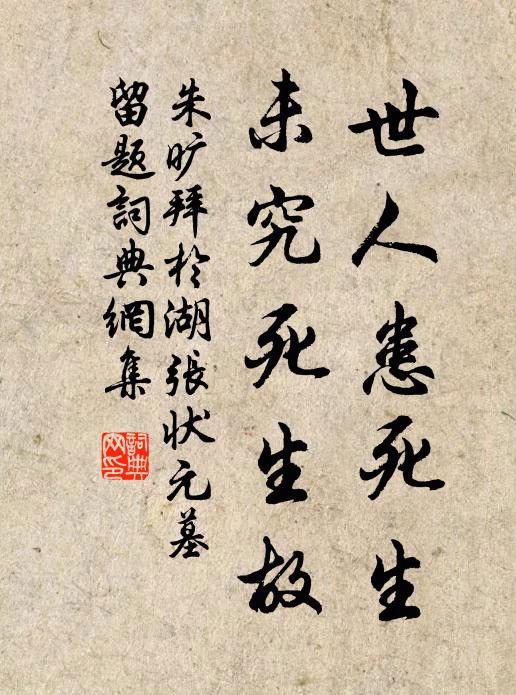 世人患死生
未究死生故
朱旷拜於湖張状元墓
留题詞典網集
詞典
网印